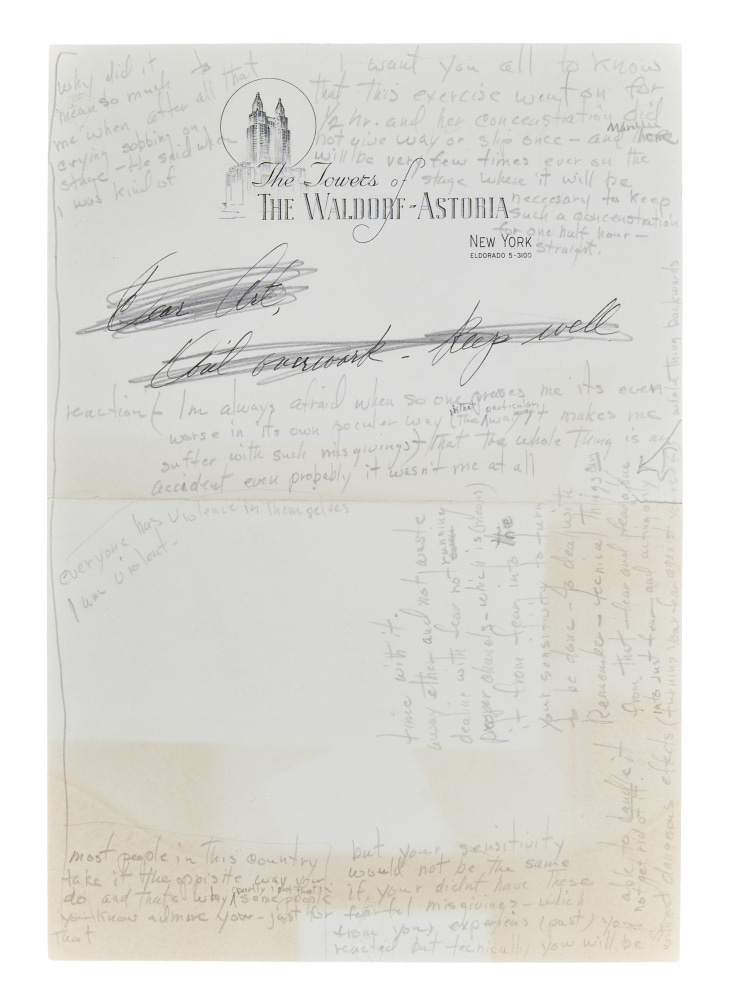 why did it
mean so much to
me when after all that
crying sobbing on
stage - He said when
I was kind of
I want you all to know
that this exercise went on for
1/2 hr. and her concentration did
not give way or slip once - and
maybe
there
will be very few times ever on the
stage where it will be
necessary to keep
such a concentration
for one half hour -
straight.
The Towers of
THE WALDORF-ASTORIA
NEW YORK
ELDORADO 5-3100
Dear Art,
Avoid overwork - Keep well
reaction (- I'm always afraid when so one praises me its even
worse in its own peculer way (the
that particular
way) it makes me
suffer with such misgivings) that the whole thing is an
accident even probably it wasn't me at all
everyone has violence in themselves
I am violent -
most people in this country
take it the opposite way your
do and thats why
(partly
some people
you know admore you - just for
that
but your sensitivity
would not be the same
if your didnt have these
fearful misgivings - which
from your experiens (past) your
reacted but tecnically you will be
able to handle it
not get rid of it
without dangerous effects (turning your fear
whole thing backwards
from that - fear and
into just fear - and
Remember - tecnical things
to be done - to deal with
your sensitivity to turn
it from fear into the
proper chanels - which is (means)
dealing with fear not running
away either and not waste
time with it.